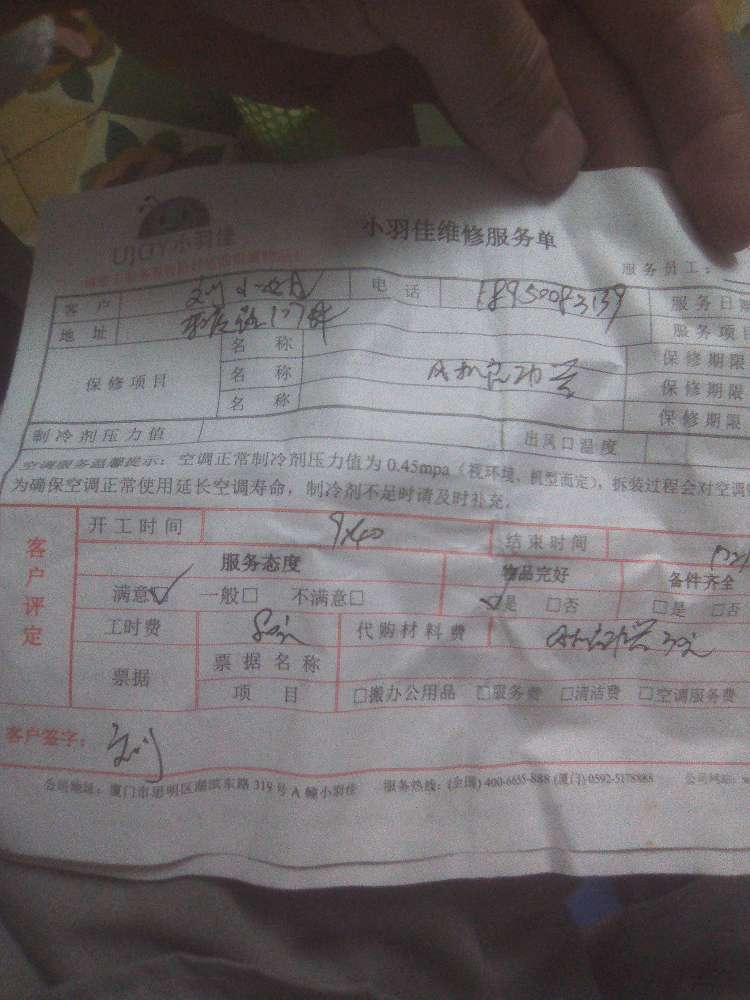 UJOY小羽佳
小羽佳维修服务单
服务员工：
客户 刘 电话 18950083139 服务日期
地址 路127号 服务项目
保修项目 名称 保修期限
名称 保修期限
名称 保修期限
制冷剂压力值 出风口温度
空调服务温馨提示：空调正常制冷剂压力值为0.45mpa（视环境、机型而定），拆装过程会对空调
为确保空调正常使用延长空调寿命，制冷剂不足时请及时补充。
客户评定
开工时间 9:40 结束时间
服务态度 物品完好 备件齐全
满意☑ 一般□ 不满意□ ☑是 □否 □是 □否
工时费 代购材料费
票据 票据名称
项目 □搬办公用品 □服务费 □清洁费 □空调服务费
客户签字： 刘
公司地址：厦门市思明区湖滨东路319号A幢小羽佳 服务热线：(全国) 400-6655-888 (厦门) 0592-5178888 公司网站：